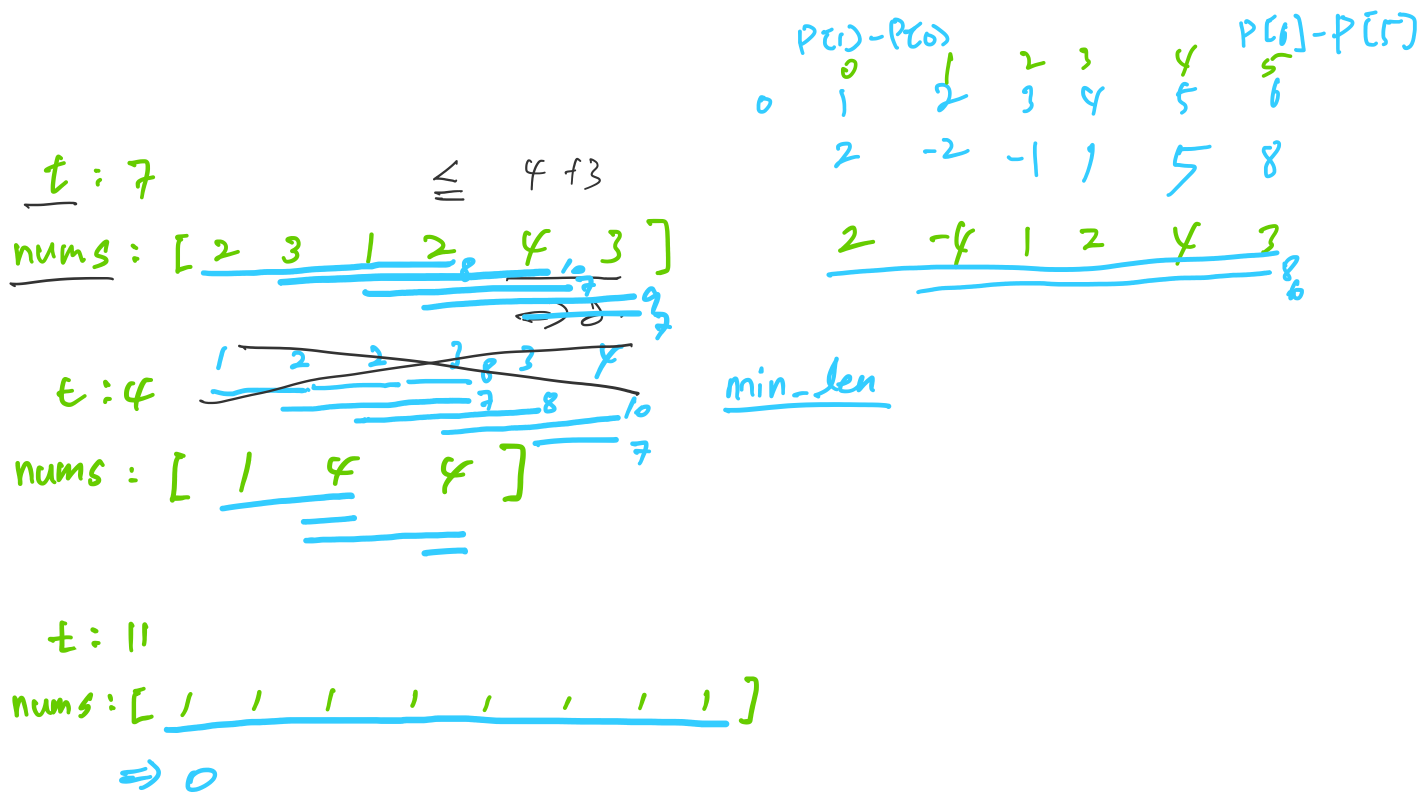 P[1]-P[0] P[6]-P[5]
0 1 2 3 4 5
0 1 2 3 4 5 6
2 -2 -1 1 5 8
t : 7
≤ 4+3
nums : [ 2 3 1 2 4 3 ]
2 -4 1 2 4 3
8 10 7 9 7
8 6
1 2 2 3 3 4
8 7 8 10 7
t : 4
min_len
nums : [ 1 4 4 ]
t : 11
nums : [ 1 1 1 1 1 1 1 1 ]
=> 0